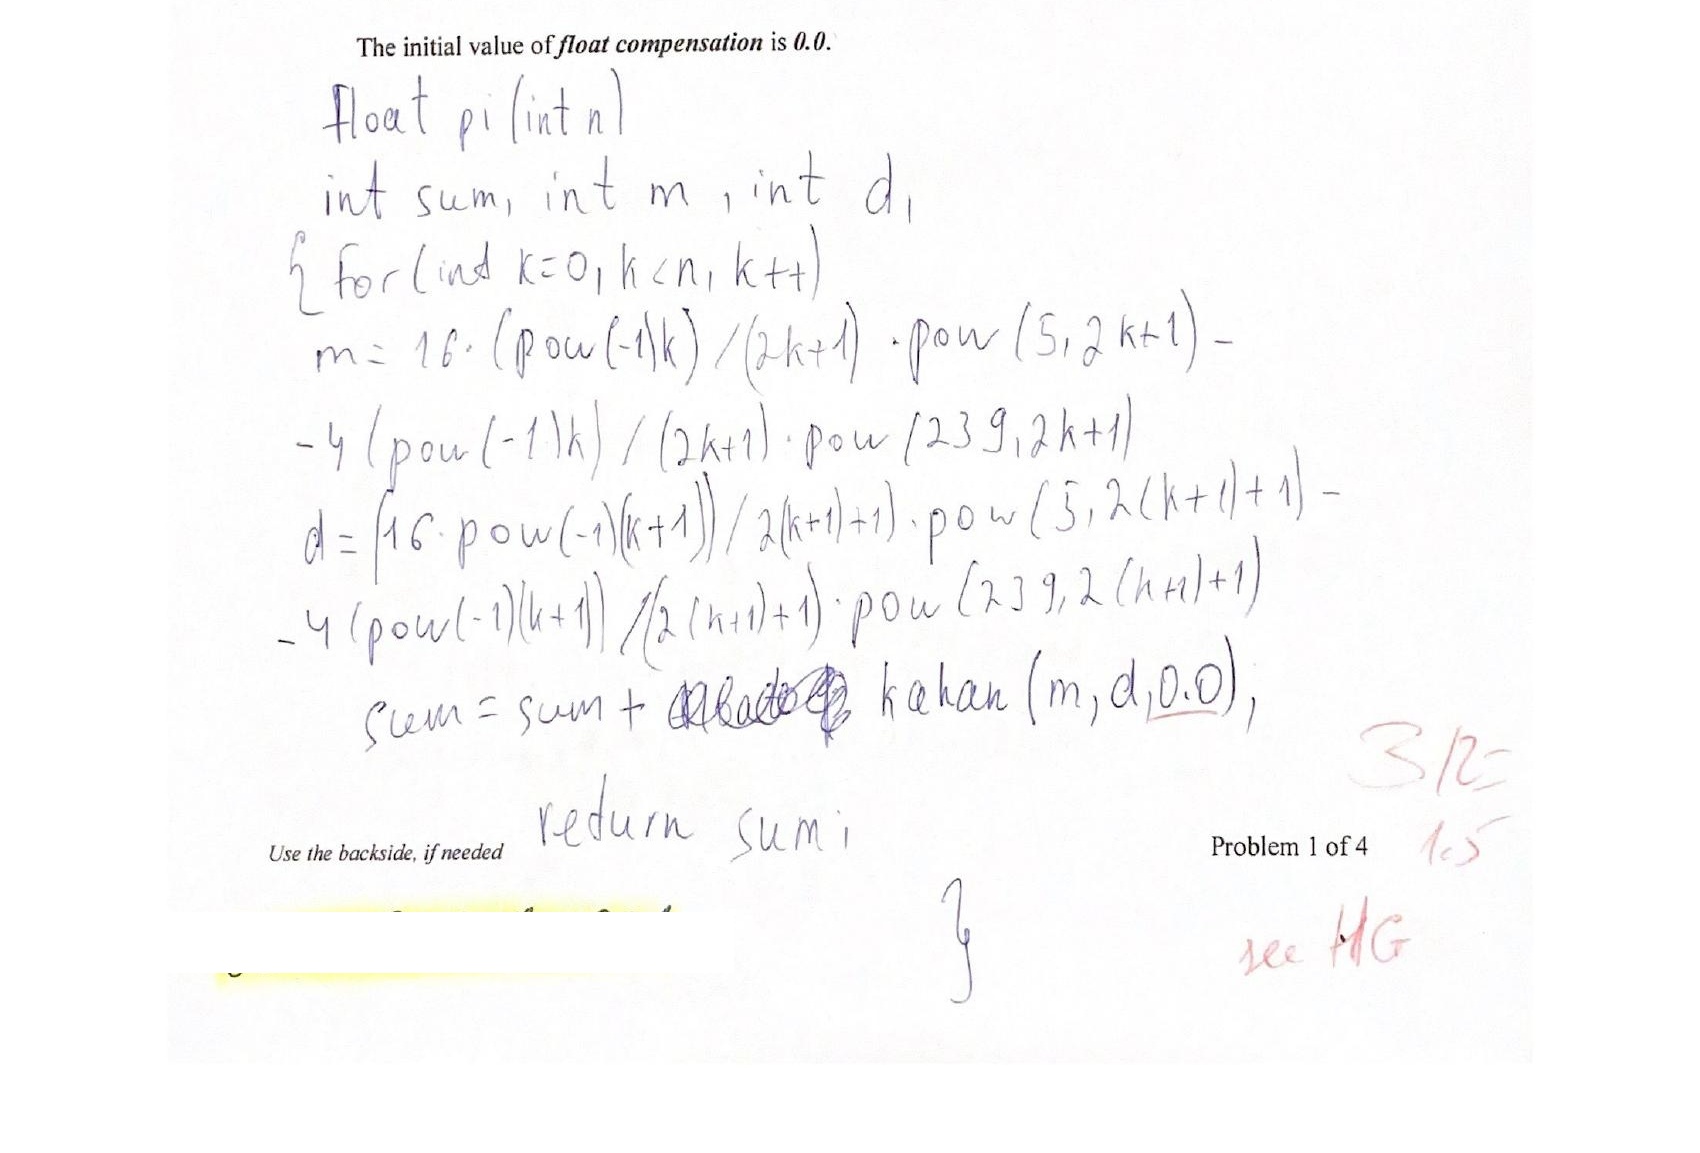 The initial value of float compensation is 0.0.
float pi (int n)
int sum, int m , int d,
{ for (int k=0, k<n, k++)
m = 16· (pow(-1)k) /(2k+1) · pow (5,2k+1) -
-4 (pow(-1)k) / (2k+1) · pow (239,2k+1)
d = (16·pow(-1)(k+1)) / 2(k+1)+1) · pow (5,2(k+1)+1) -
-4 (pow(-1)(k+1)) /(2(k+1)+1) · pow (239,2(k+1)+1)
sum = sum + kahan (m,d,0.0);
3/2=
return sum;
Use the backside, if needed
Problem 1 of 4
1.5
}
see HG